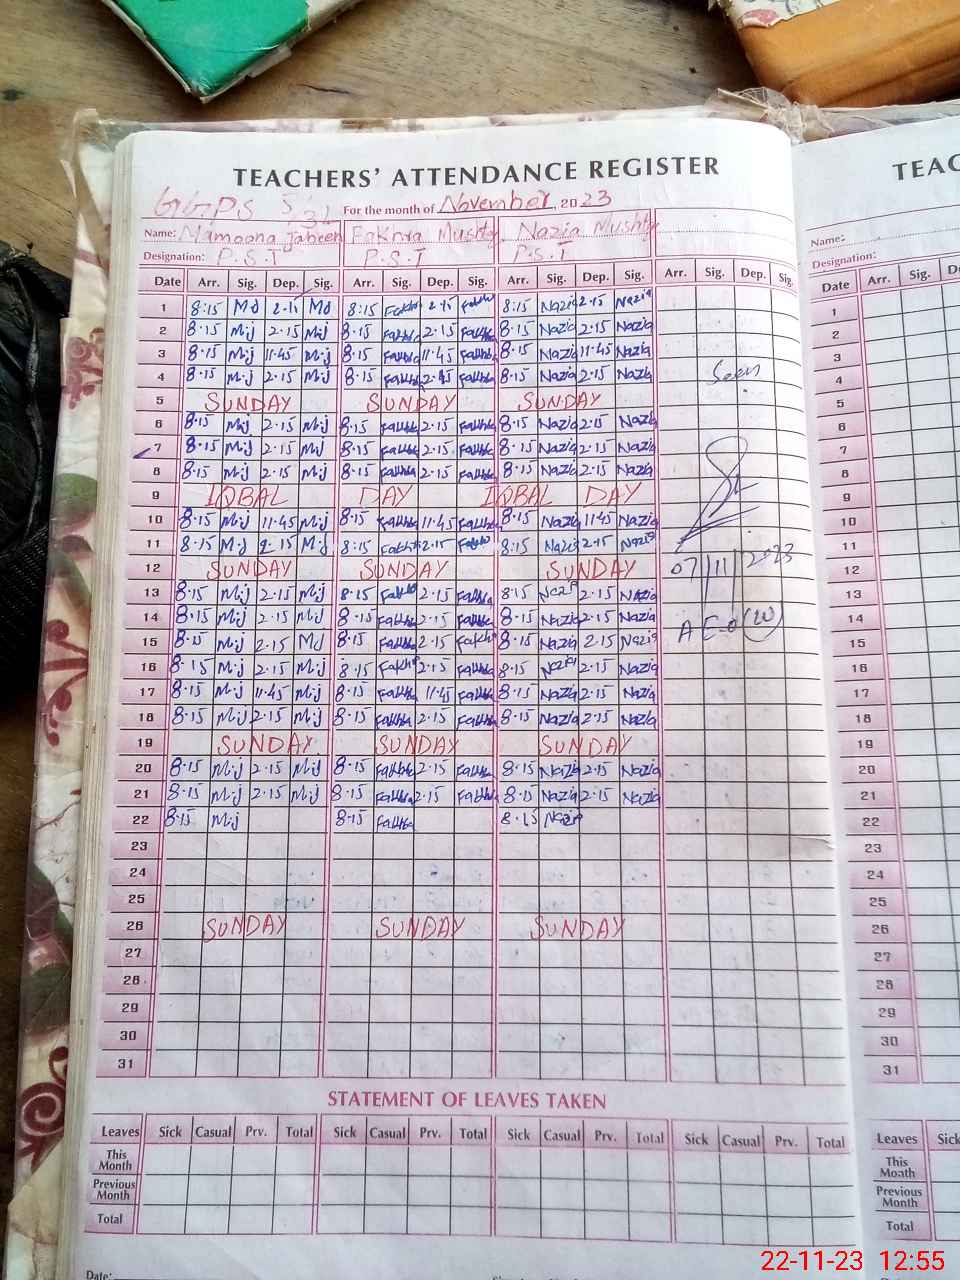 TEACHERS' ATTENDANCE REGISTER
GGPS 5/3L For the month of November, 2023
Name: Mamoona Jabeen Fakhra Mushtq Nazia Mushtq
Designation: P.S.T P.S.T P.S.T
Date Arr. Sig. Dep. Sig. Arr. Sig. Dep. Sig. Arr. Sig. Dep. Sig. Arr. Sig. Dep. Sig.
1 8:15 Md 2.15 Md 8:15 Fakhra 2.15 Fakhra 8:15 Nazia 2.15 Nazia
2 8.15 M.j 2.15 M.j 8.15 Fakhra 2.15 Fakhra 8.15 Nazia 2.15 Nazia
3 8.15 M.j 11.45 M.j 8.15 Fakhra 11.45 Fakhra 8.15 Nazia 11.45 Nazia
4 8.15 M.j 2.15 M.j 8.15 Fakhra 2.15 Fakhra 8.15 Nazia 2.15 Nazia Seen
5 SUNDAY SUNDAY SUNDAY
6 8.15 M.j 2.15 M.j 8.15 Fakhra 2.15 Fakhra 8.15 Nazia 2.15 Nazia
7 8.15 M.j 2.15 M.j 8.15 Fakhra 2.15 Fakhra 8.15 Nazia 2.15 Nazia
8 8.15 M.j 2.15 M.j 8.15 Fakhra 2.15 Fakhra 8.15 Nazia 2.15 Nazia
9 IQBAL DAY IQBAL DAY
10 8.15 M.j 11.45 M.j 8.15 Fakhra 11.45 Fakhra 8.15 Nazia 11.45 Nazia
11 8.15 M.j 2.15 M.j 8:15 Fakhra 2.15 Fakhra 8:15 Nazia 2.15 Nazia
12 SUNDAY SUNDAY SUNDAY 07/11/2023
13 8.15 M.j 2.15 M.j 8.15 Fakhra 2.15 Fakhra 8.15 Nazia 2.15 Nazia
14 8.15 M.j 2.15 M.j 8.15 Fakhra 2.15 Fakhra 8.15 Nazia 2.15 Nazia
15 8.15 M.j 2.15 Md 8.15 Fakhra 2.15 Fakhra 8.15 Nazia 2.15 Nazia A E-o (W)
16 8.15 M.j 2.15 M.j 8.15 Fakhra 2.15 Fakhra 8.15 Nazia 2.15 Nazia
17 8.15 M.j 11.45 M.j 8.15 Fakhra 11.45 Fakhra 8.15 Nazia 2.15 Nazia
18 8.15 M.j 2.15 M.j 8.15 Fakhra 2.15 Fakhra 8.15 Nazia 2.15 Nazia
19 SUNDAY SUNDAY SUNDAY
20 8.15 M.j 2.15 M.j 8.15 Fakhra 2.15 Fakhra 8.15 Nazia 2.15 Nazia
21 8.15 M.j 2.15 M.j 8.15 Fakhra 2.15 Fakhra 8.15 Nazia 2.15 Nazia
22 8.15 M.j 8.15 Fakhra 8.15 Nazia
23
24
25
26 SUNDAY SUNDAY SUNDAY
27
28
29
30
31
STATEMENT OF LEAVES TAKEN
Leaves Sick Casual Prv. Total Sick Casual Prv. Total Sick Casual Prv. Total Sick Casual Prv. Total
This Month
Previous Month
Total
Date:
TEAC
Name:
Designation:
Date Arr. Sig.
1
2
3
4
5
6
7
8
9
10
11
12
13
14
15
16
17
18
19
20
21
22
23
24
25
26
27
28
29
30
31
Leaves Sick
This Month
Previous Month
Total
22-11-23 12:55